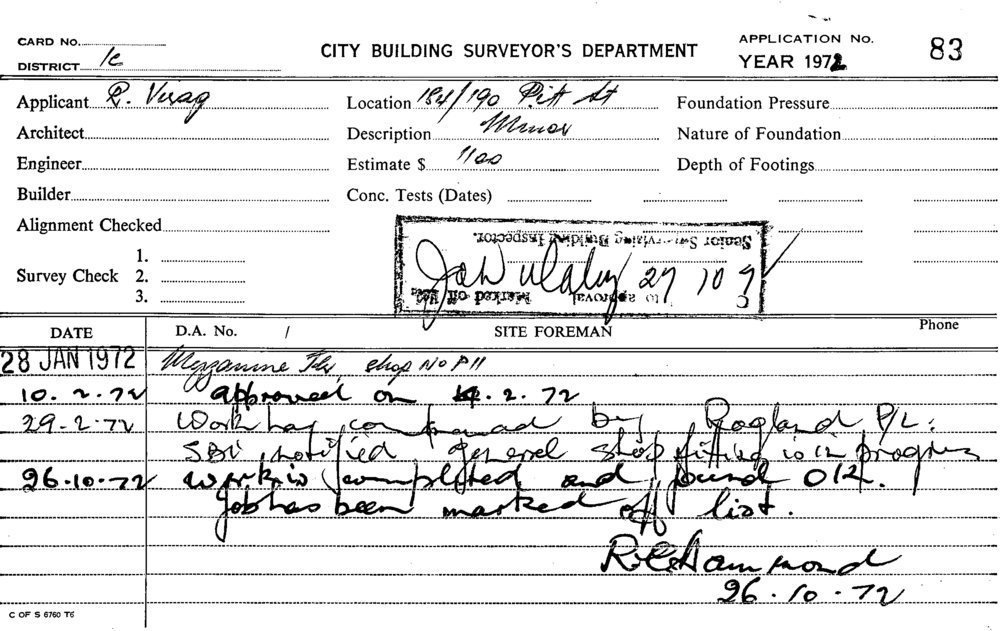 CARD No.
DISTRICT 1c
CITY BUILDING SURVEYOR'S DEPARTMENT
APPLICATION No. 83
YEAR 1972
Applicant R. Virag
Location 184/190 Pitt St
Foundation Pressure
Architect
Description Minor
Nature of Foundation
Engineer
Estimate $ 1100
Depth of Footings
Builder
Conc. Tests (Dates)
Alignment Checked
Survey Check 1.
2.
3.
Marked off
to approval
27 10 7
Senior Supervising Building Inspector.
DATE D.A. No. / SITE FOREMAN Phone
28 JAN 1972 Mezzanine Flr, shop No P11
10.2.72 approved on 2.72
29.2.72 Work has by P/L.
SBI notified general shop fitting is in progress
26.10.72 work is completed and found OK.
Job has been marked off list.
R.C. Hammond
26.10.72
C OF S 6760 T6